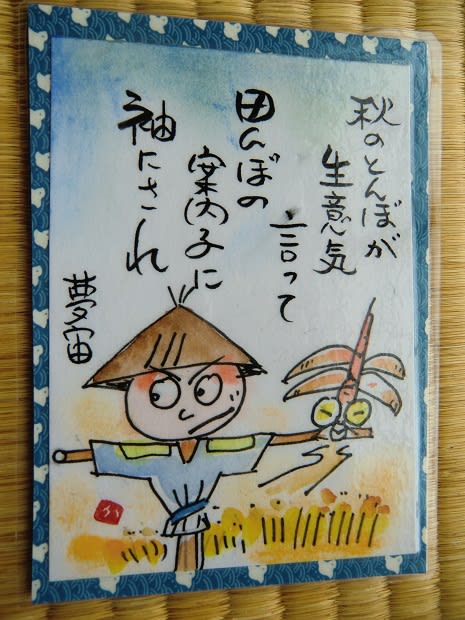 秋のとんぼが
生意気
言って
田んぼの
案内子に
袖にされ
夢宙